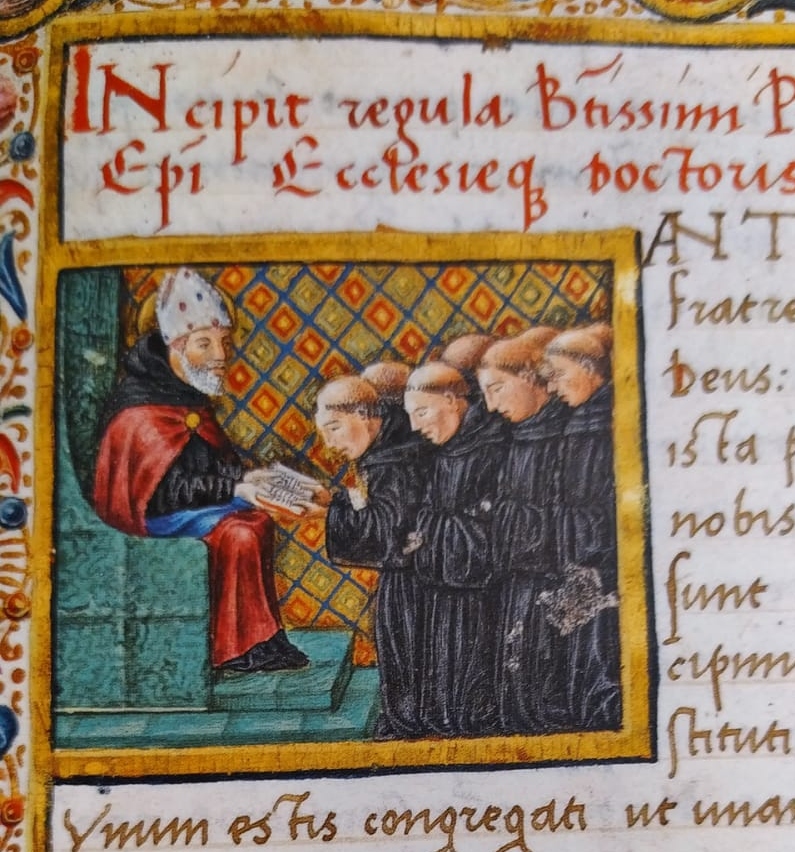 INcipit regula Btissimi P
Epi Ecclesieq doctoris
ANT
fratre
deus:
ista p
nobis
sunt
cipim
stituti
Vnum estis congregati ut unan